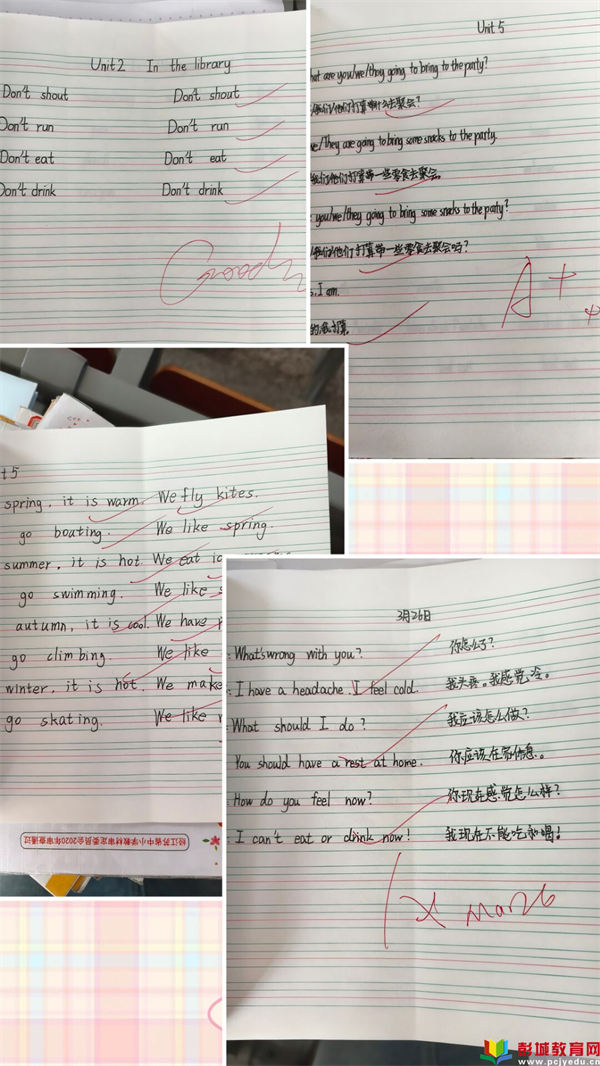 Unit2 In the library
Don't shout Don't shout
Don't run Don't run
Don't eat Don't eat
Don't drink Don't drink
Good
Unit 5
hat are you/we/they going to bring to the party?
们/他们打算带什么去聚会?
we/They are going to bring some snacks to the party.
我们/他们打算带一些零食去聚会。
you/we/they going to bring some snacks to the party?
我们/他们打算带一些零食去聚会吗?
s, I am.
的,我打算。
A+
t5
spring, it is warm. We fly kites.
go boating. We like spring.
summer, it is hot. We eat
go swimming. We like
autumn, it is cool. We have
go climbing. We like
winter, it is hot. We make
go skating. We like
经江苏省中小学教材审定委员会2020年审查通过
3月26日
: What's wrong with you? 你怎么了?
: I have a headache. I feel cold. 我头疼。我感觉冷。
: What should I do? 我应该怎么做?
You should have a rest at home. 你应该在家休息。
: How do you feel now? 你现在感觉怎么样?
: I can't eat or drink now! 我现在不能吃和喝!
Mar26
彭城教育网
www.pcjyedu.cn